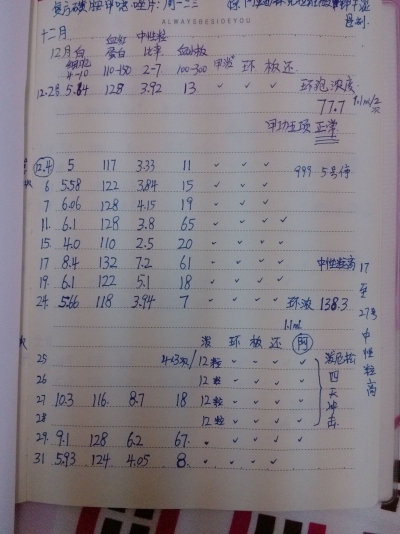 ALWAYSBESIDEYOU
十二月 血红 中性粒
12月 白 蛋白 比率 血小板
细胞 4-10 110-150 2-7 100-300 甲泼 环 板 还
12.2号 5.84 128 3.92 13 ✓ ✓ ✓ 环孢浓度
77.7
甲功五项 正常
12.4 5 117 3.33 11 ✓ ✓ ✓ 999 5号停
6 5.58 122 3.84 15 ✓ ✓ ✓
7 6.06 128 4.15 19 ✓ ✓ ✓
11 6.1 128 3.8 65 ✓ ✓ ✓ ✓
15 4.0 110 2.5 20 ✓ ✓ ✓ ✓
17 8.4 132 7.2 61 ✓ ✓ ✓ ✓ 中性粒高
19 6.1 122 5.1 18 ✓ ✓ ✓ ✓
24 5.66 118 3.94 7 ✓ ✓ ✓ ✓ 环浓 138.3
17至27号中性粒高
1.1ml
泼 环 板 还
25 12粒 ✓ ✓ ✓ ✓
26 12粒 ✓ ✓ ✓ ✓
27 10.3 116 8.7 18 12粒 ✓ ✓ ✓ ✓
28 12粒 ✓ ✓ ✓ ✓
四天冲击
29 9.1 128 6.2 67 ✓ ✓ ✓ ✓
31 5.93 124 4.05 8 ✓ ✓ ✓ ✓